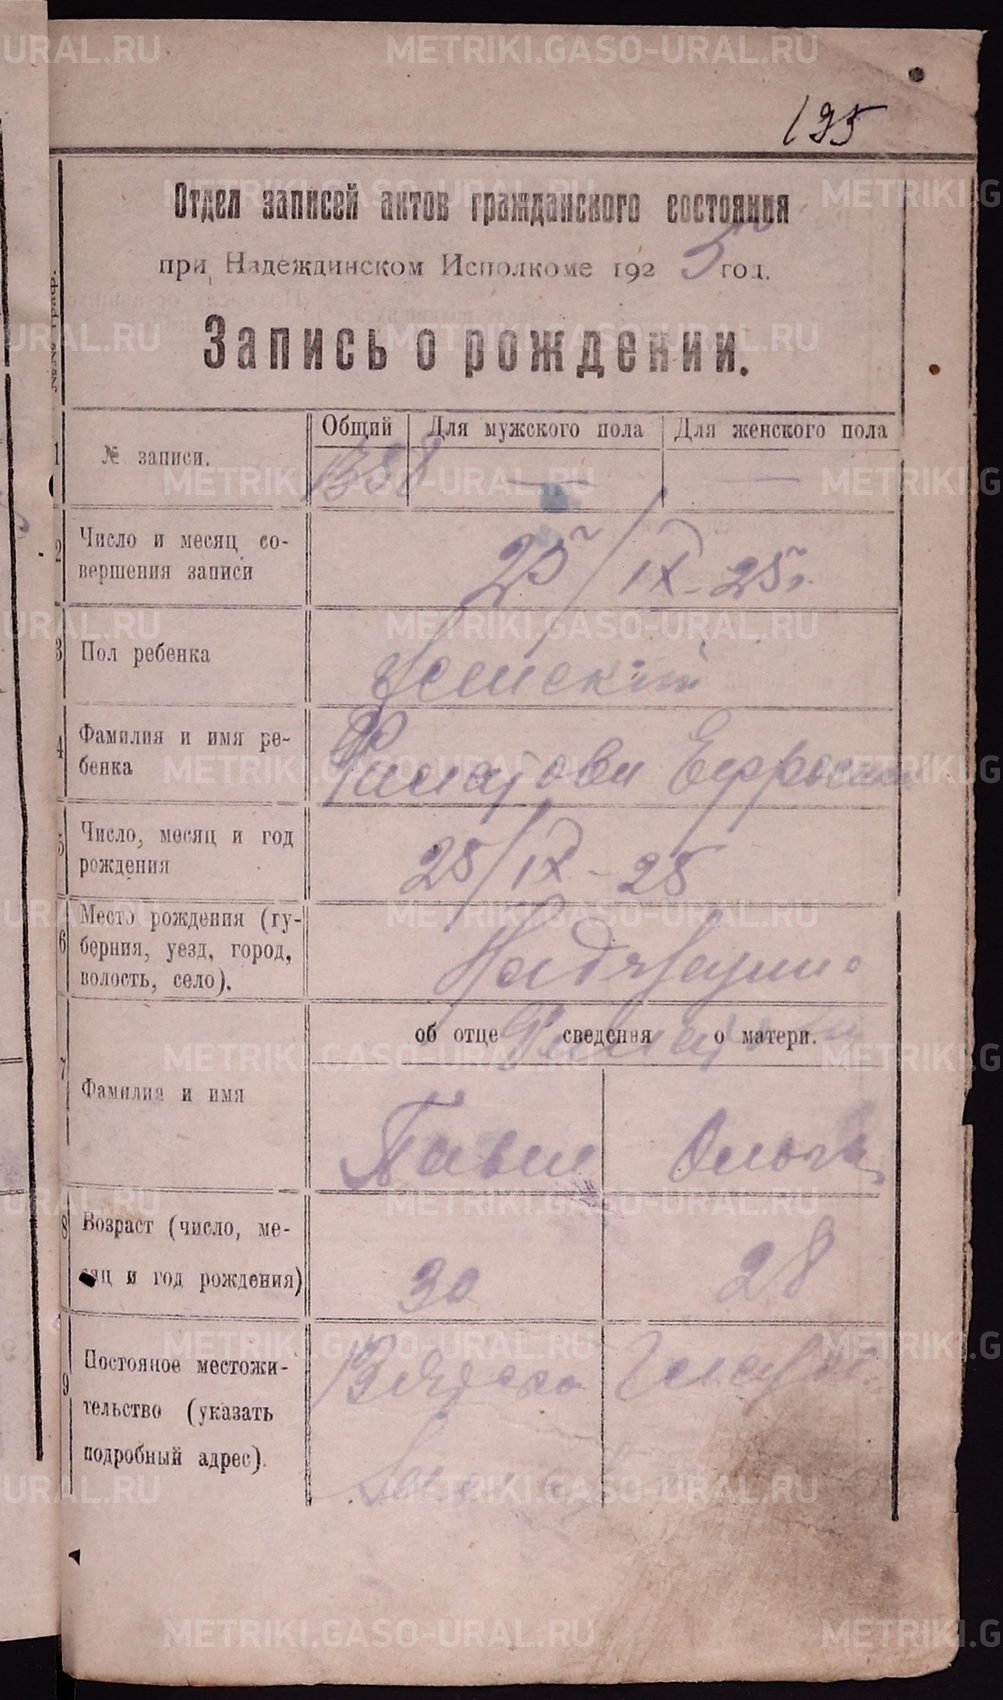 METRIKI.GASO-URAL.RU
195
Отдел записей актов гражданского состояния
при Надеждинском Исполкоме 192 5 год.
Запись о рождении.
Общий Для мужского пола Для женского пола
1 № записи. 1358 — —
2 Число и месяц со-
вершения записи
25/IX-25г.
3 Пол ребенка
Женский
4 Фамилия и имя ре-
бенка
5 Число, месяц и год
рождения
/IX-25
6 Место рождения (гу-
берния, уезд, город,
волость, село).
об отце сведения о матери.
7 Фамилия и имя
Павел Ольга
8 Возраст (число, ме-
сяц и год рождения)
30 28
9 Постояное местожи-
тельство (указать
подробный адрес).